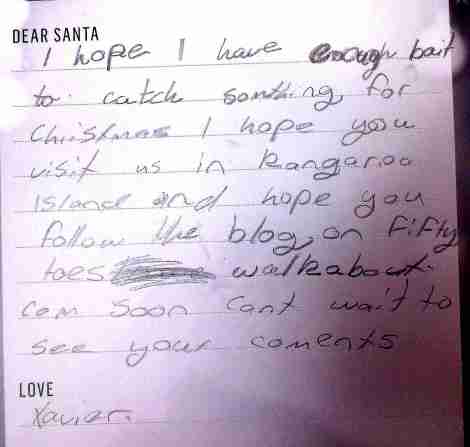 DEAR SANTA
I hope I have enough bait
to catch somthing for
Christmas I hope you
visit us in Kangaroo
Island and hope you
follow the blog, on Fifty
toes walkabout.
com soon cant wait to
see your coments
LOVE
Xavier.